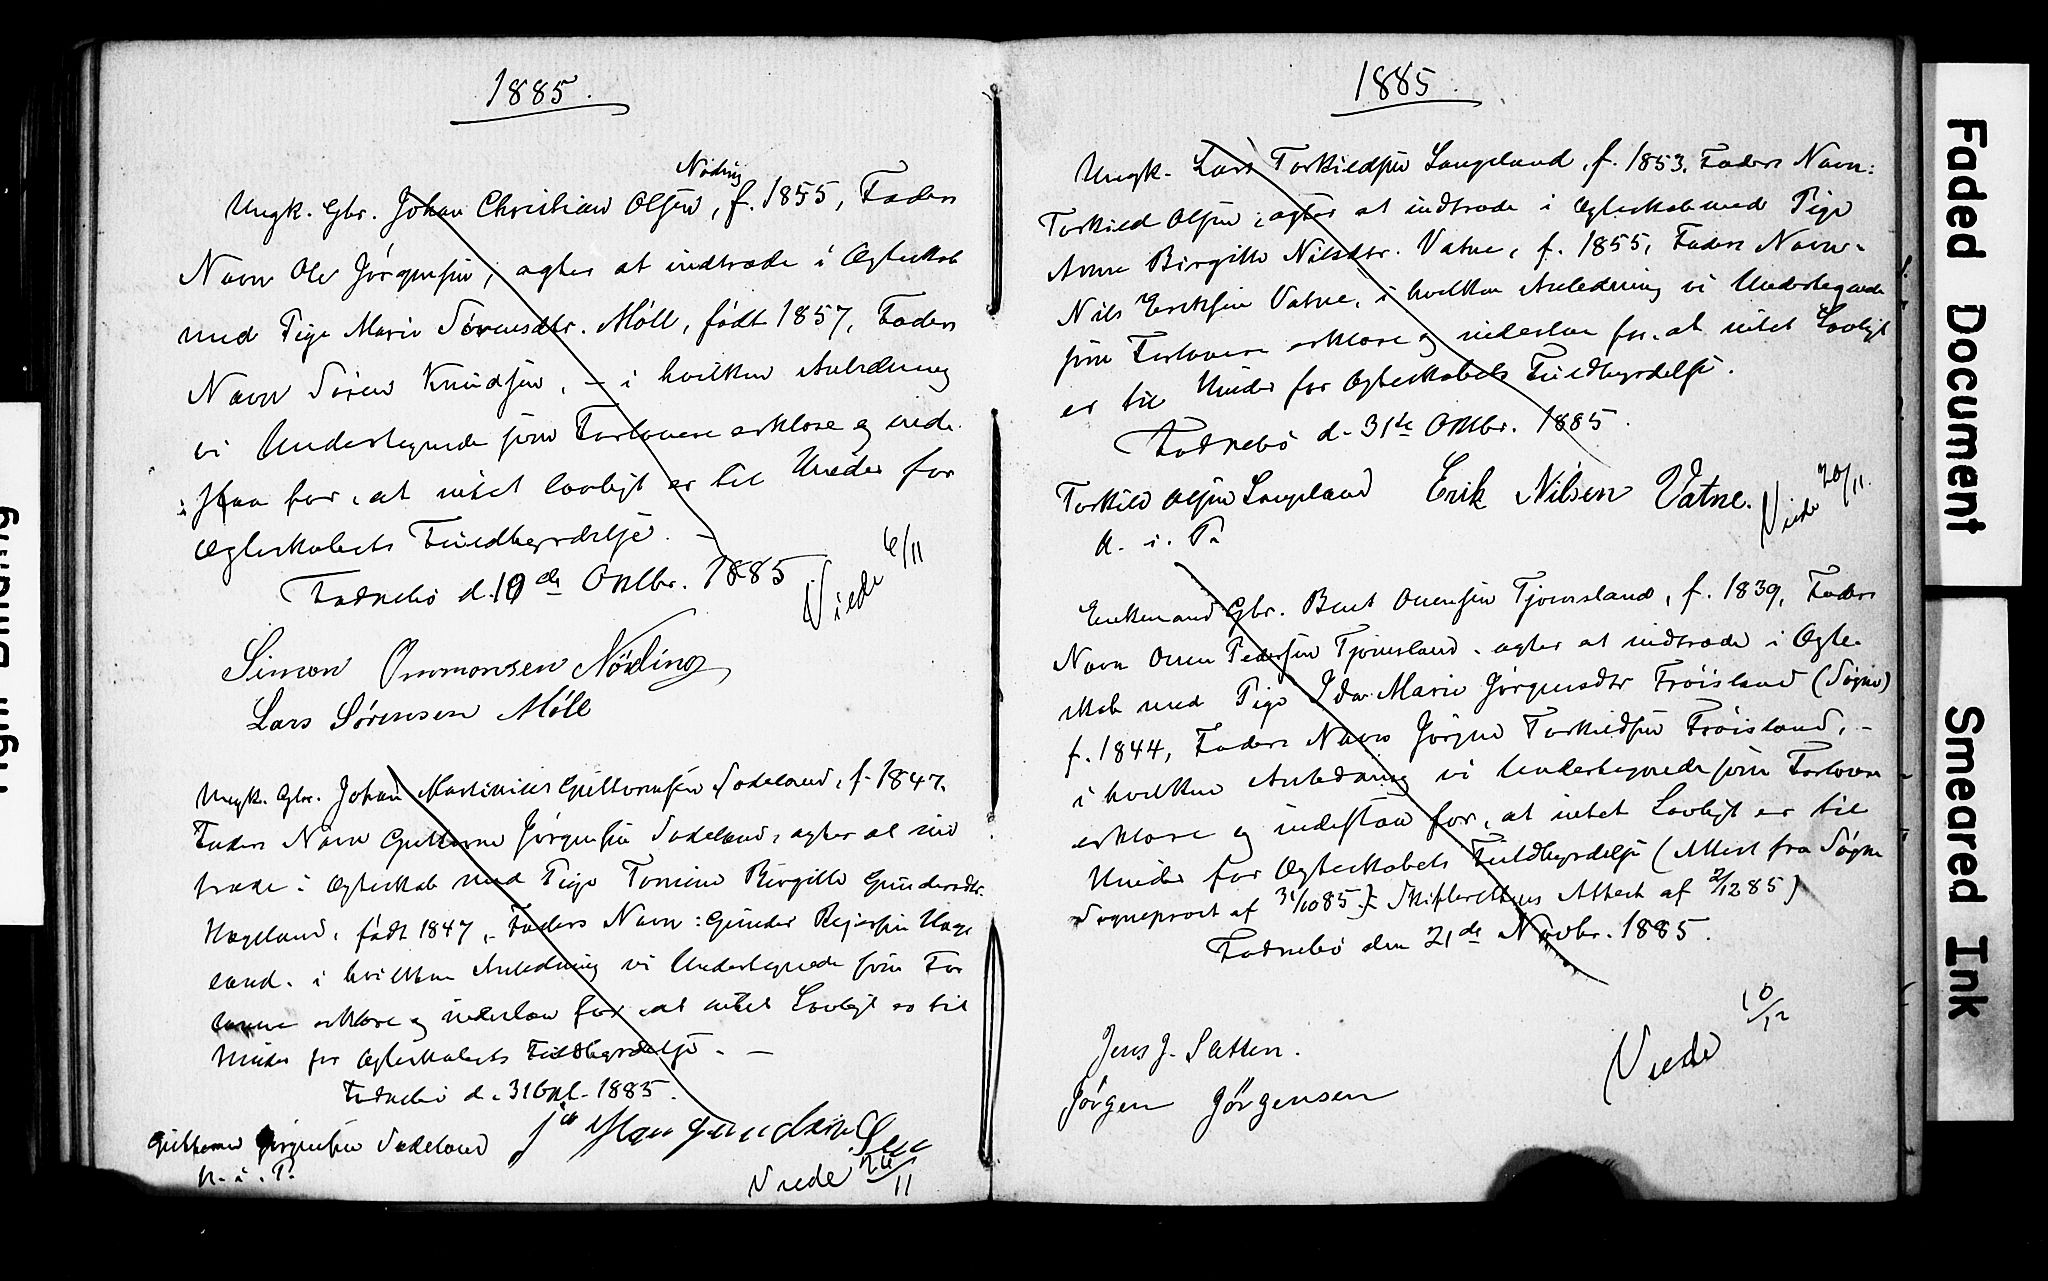 1885.
Nöding
Ungk. Gbr. Johan Christian Olsen, f. 1855, Faders
Navn Ole Jörgensen, agter at indtræde i Ægteskab
med Pige Marie Sörensdtr. Möll, födt 1857, Faders
Navn Sören Knudsen, – i hvilken Anledning
vi Undertegnede som Forlovere erklære og inde
staa for, at intet lovligt er til Hinder for
Ægteskabets Fuldbyrdelse. –
Fodnebö d. 19de Oktbr. 1885
Viede 6/11
Simon Ommonsen Nöding
Lars Sörensen Möll
Ungk. Gbr. Johan Martinius Guttormsen Sodeland, f. 1847.
Faders Navn Guttorm Jörgensen Sodeland, agter at ind
træde i Ægteskab med Pige Tomine Birgitte Gundersdtr.
Hægeland, födt 1847, Faders Navn: Gunder Hæge
land. i hvilken Anledning vi Undertegnede som For
lovere erklære og indestaa for at intet Lovligt er til
Hinder for Ægteskabets Fuldbyrdelse. –
Fodnebö d. 31 Okt. 1885.
Guttorm Jörgensen Sodeland
m. i. P.
Viede 26/11
1885.
Ungk. Lars Torkildsen Langeland, f. 1853. Faders Navn:
Torkild Olsen; agter at indtræde i Ægteskab med Pige
Anne Birgitte Nilsdtr. Vatne, f. 1855, Faders Navn
Nils Eriksen Vatne, i hvilken Anledning vi Undertegnede
som Forlovere erklære og indestaa for, at intet Lovligt
er til Hinder for Ægteskabets Fuldbyrdelse.
Fodnebö d. 31te Oktbr. 1885.
Torkild Olsen Langeland Erik Nilsen Vatne.
m. i. P.
Viede 20/11.
Enkemand Gbr. Bent Ommsen Tjomsland, f. 1839, Faders
Navn Omm Pedersen Tjomsland. agter at indtræde i Ægte
skab med Pige Ida Marie Jörgensdtr Fröisland (Søgne)
f. 1844, Faders Navn Jörgen Torkildsen Fröisland, –
i hvilken Anledning vi Undertegnede som Forlovere
erklære og indestaa for, at intet Lovligt er til
Hinder for Ægteskabets Fuldbyrdelse (Attest fra Søgne
Sogneprest af 31/10 85. Skifterettens Attest af 2/12 85)
Fodnebö den 21de Novbr. 1885.
Jens J. Sætten.
Jörgen Jörgensen
Viede 10/12
Faded Document
Smeared Ink